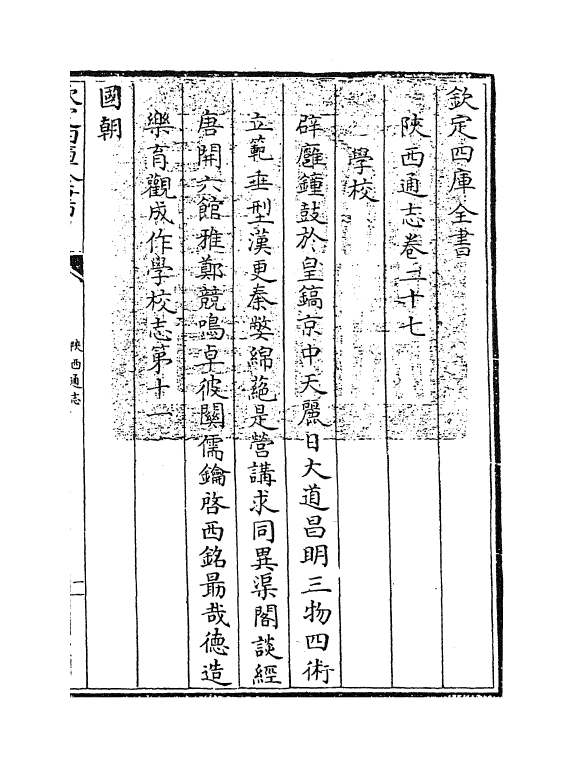 欽定四庫全書
陜西通志卷二十七
學校
辟廱鐘鼓於皇鎬京中天麗日大道昌明三物四術
立範垂型漢更秦弊綿蕝是營講求同異渠閣談經
唐開六館雅鄭競鳴卓彼關儒鑰啓西銘勗哉德造
樂育觀成作學校志第十一
國朝
陜西通志